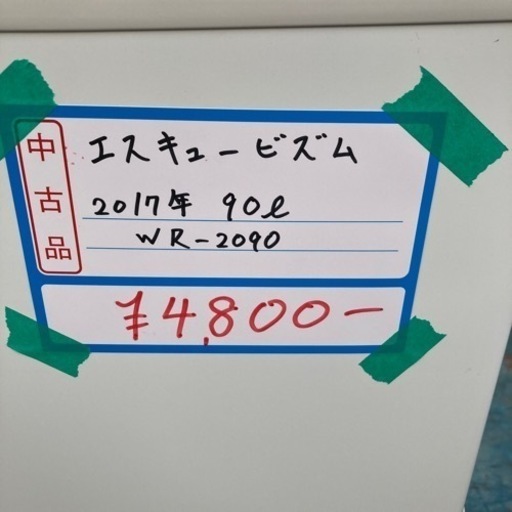 中古品
エスキュービズム
2017年 90ℓ
WR-2090
¥4,800-